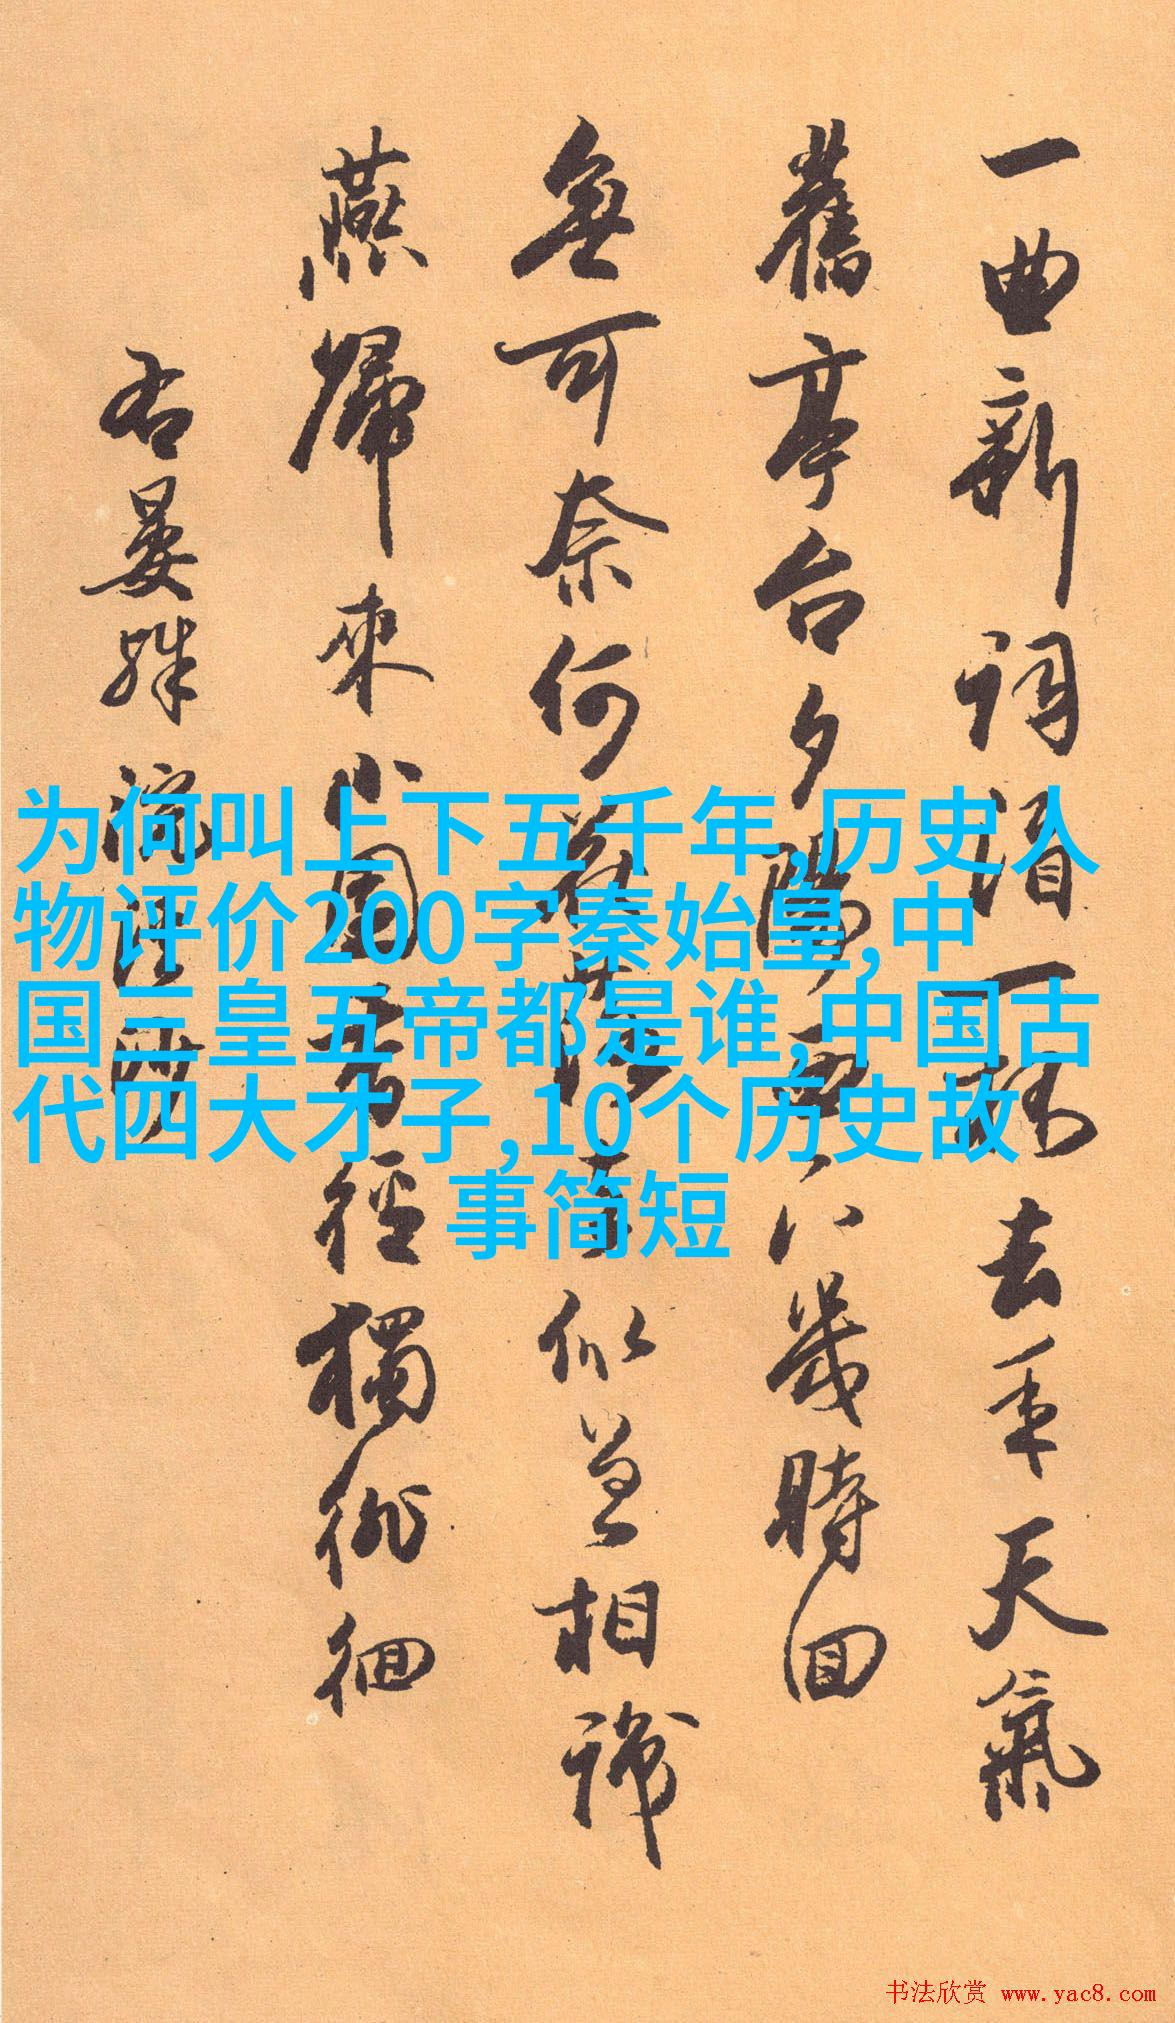 一曲新词酒一杯去年天氣
舊亭台夕陽西下幾時回
無可奈何花落去似曾相識
燕歸來小園香徑獨徘徊
右晏殊浣溪沙
为何叫上下五千年,历史人
物评价200字秦始皇,中
国三皇五帝都是谁,中国古
代四大才子,10个历史故
事简短
书法欣赏 www.yac8.com